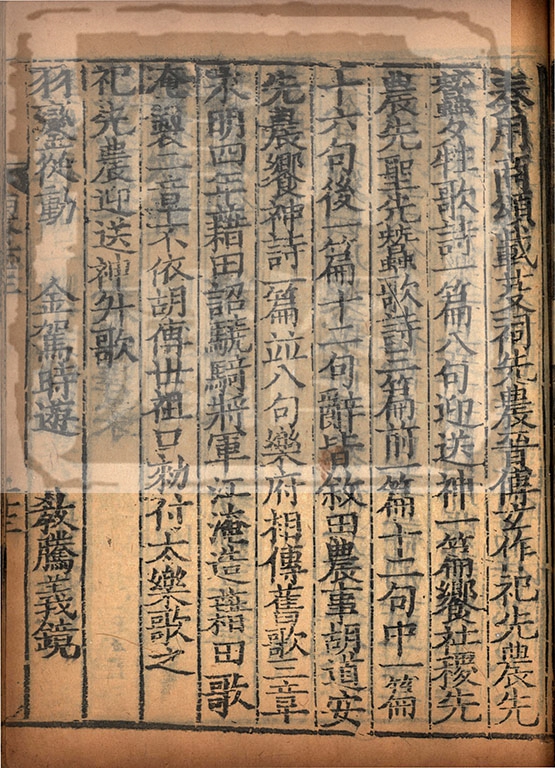 奏用商頌載芟祠先農晉傳玄作祀先農先
蠶夕牲歌詩一篇八句迎送神一篇饗社稷先
農先聖先蠶歌詩三篇前一篇十二句中一篇
十六句後一篇十二句辭皆敘田農事胡道安
先農饗神詩一篇並八句樂府相傳舊歌三章
永明四年藉田詔驍騎將軍江淹造藉田歌
淹製二章不依胡傳世祖口勑付太樂歌之
祀先農迎送神升歌
羽鑾從動 金駕時遊 教騰義鏡